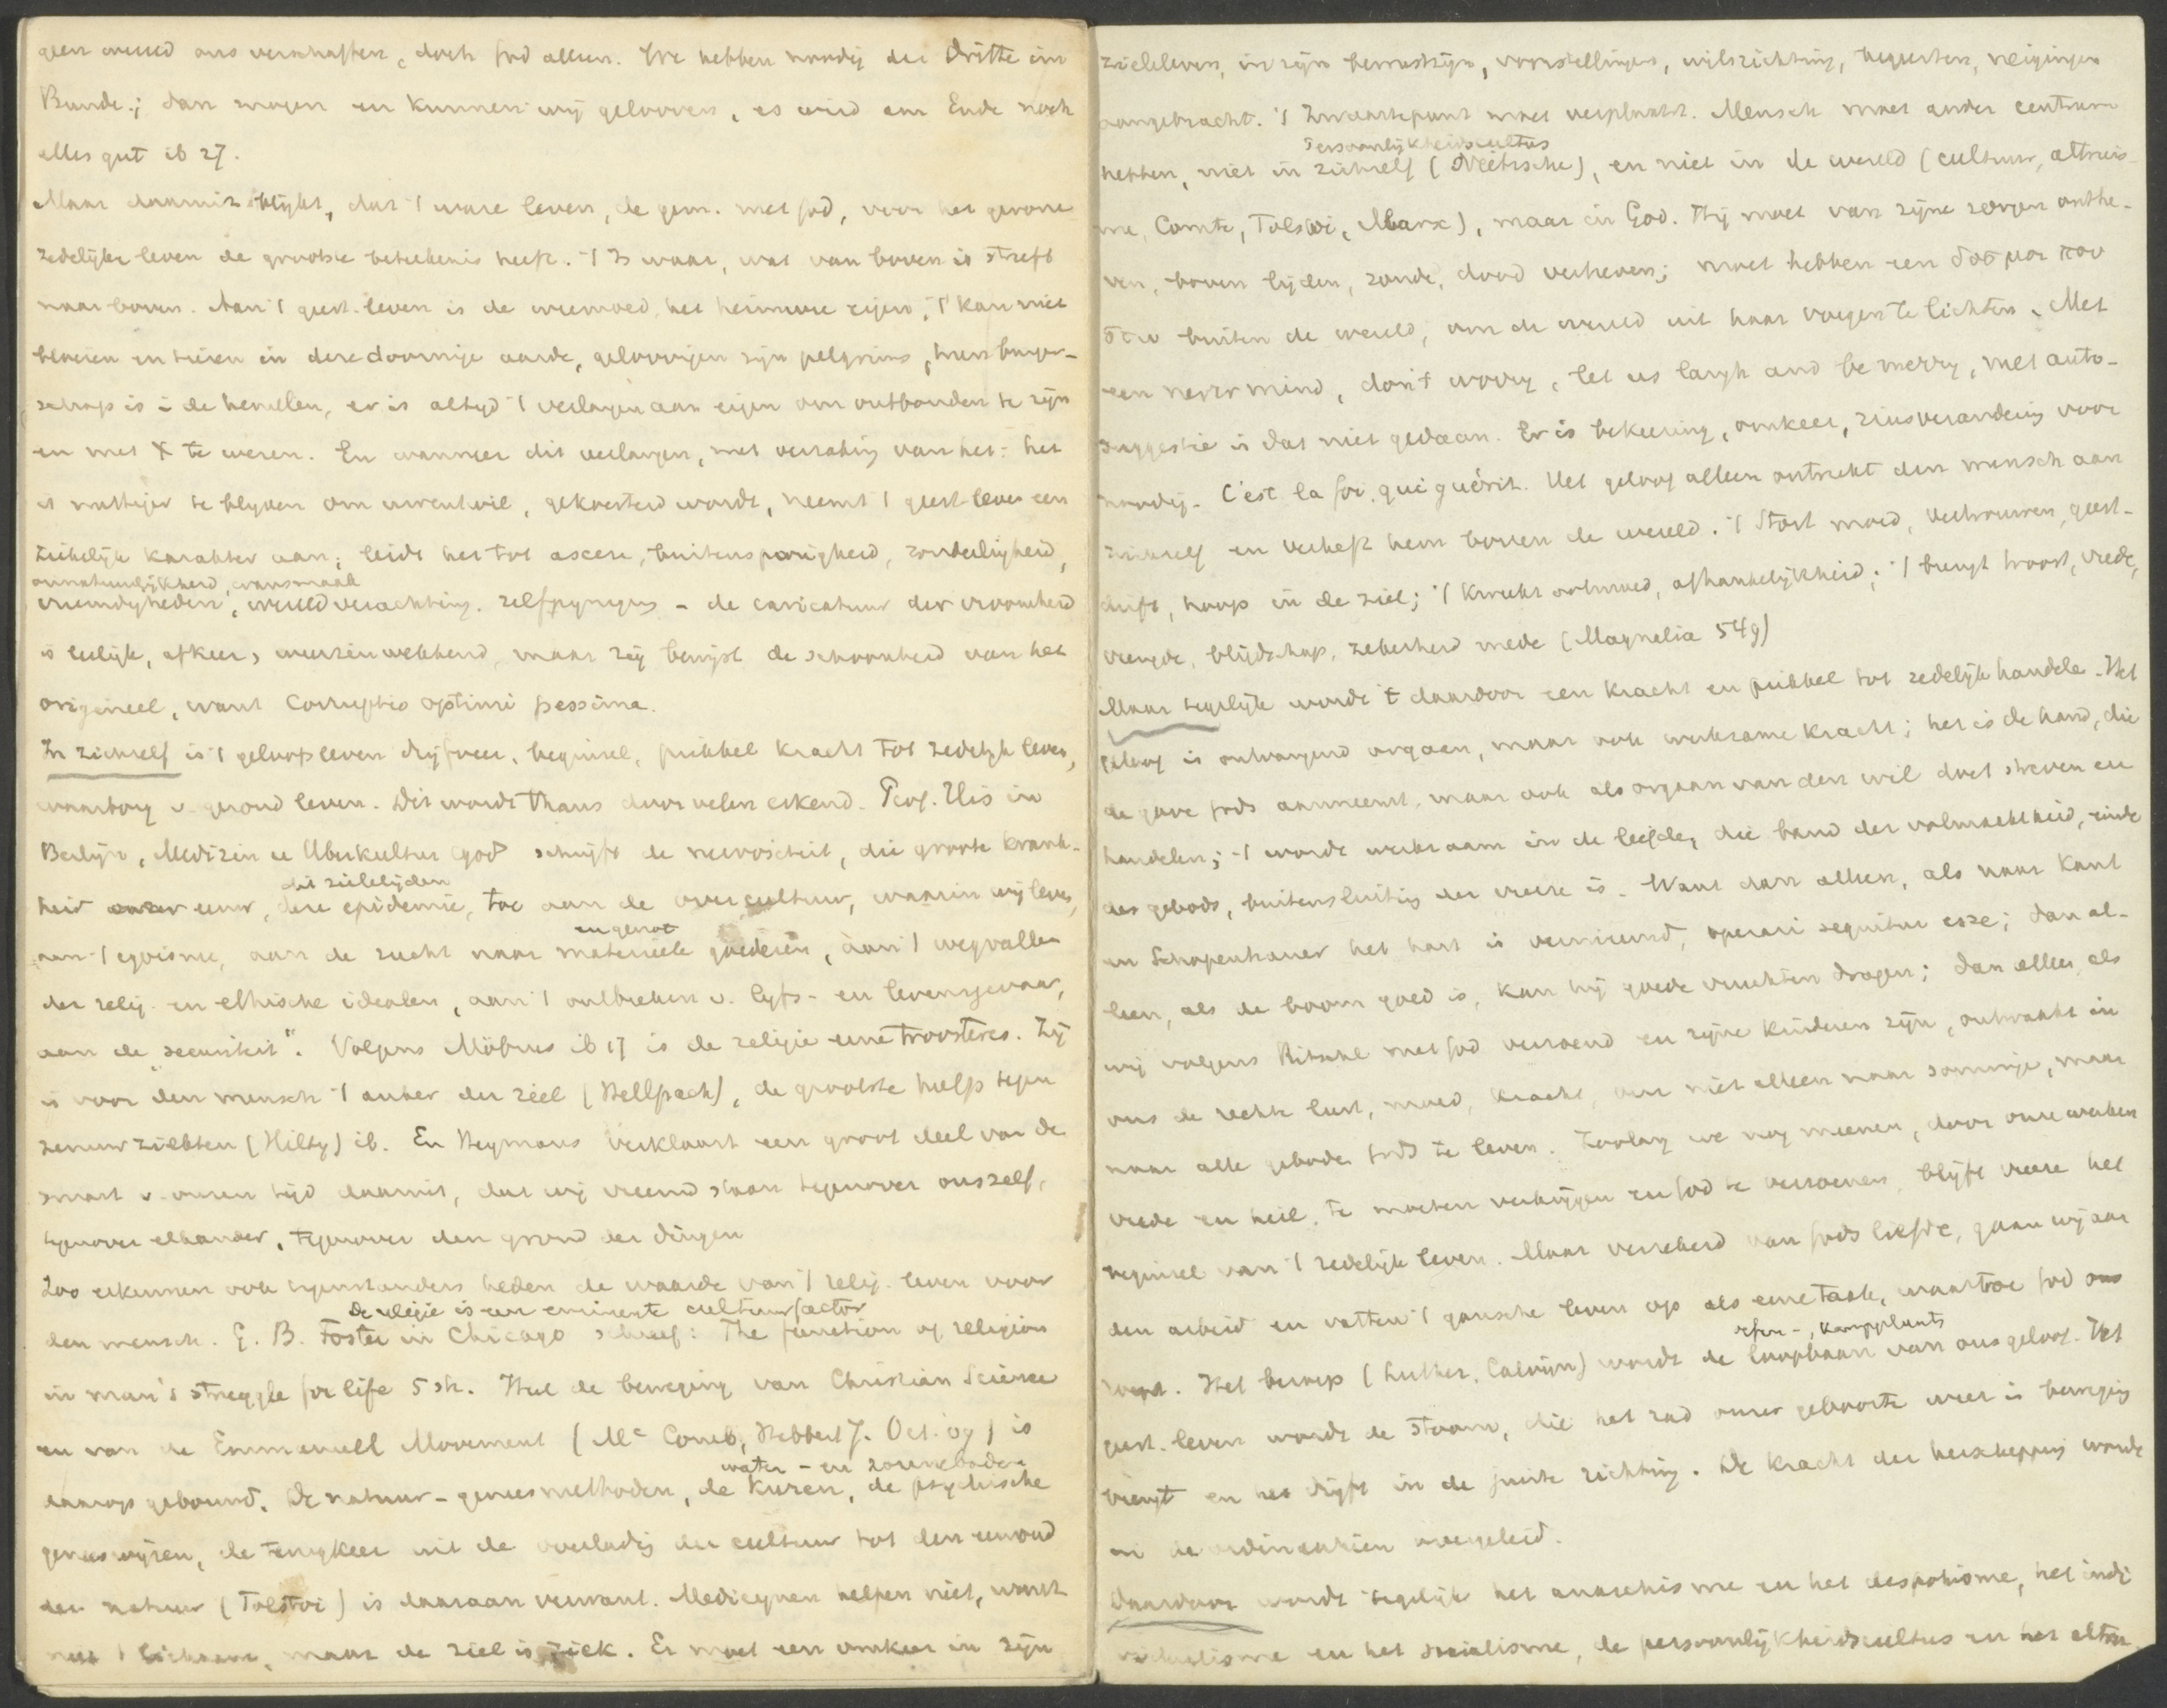 geen wereld ons verschaffen, doch God alleen. We hebben noodig der Dritte im
Bunde; dan mogen en kunnen wij gelooven, es wird am Ende noch
alles gut ib 27.
Maar daarmit blijkt, dat 't ware leven, de gem. met God, voor het gewone
zedelijke leven de grootste beteekenis heeft. 't Is waar, wat van boven is streft
naar boven. Aan 't geest. leven is de weemoed, het heimwee eigen, 't kan niet
bloeien en tieren in deze doornige aarde, geloovigen zijn pelgrims, hun burger-
schap is i de hemelen, er is altijd 't verlangen aan eigen om ontbonden te zijn
en met X te wezen. En wanneer dit verlangen, met verzaking van het: het
is nuttiger te blijven om uwentwil, gekoesterd wordt, neemt 't geest leven een
ziekelijk karakter aan; leidt het tot ascese, buitensporigheid, zonderlingheid,
onnatuurlijkheid, wansmaak
vreemdigheden, wereldverachting. zelfpijniging - de caricatuur der vroomheid
is leelijk, afkeer, weerzinwekkend, maar zij bewijst de schoonheid van het
origineel, want Corruptio optimi pessima.
In zichzelf is 't geloofsleven drijfveer, beginsel, prikkel kracht tot zedelijk leven,
waarborg v. gezond leven. Dit wordt thans door velen erkend. Prof. His in
Berlijn, Medizin u Überkultur 1908 schrijft de nervositeit, die groote krank-
dit zielelijden
heid onzer eeuw, deze epidemie, toe aan de overcultuur, waarin wij leven,
en genot
aan 't egoisme, aan de zucht naar materieele goederen, aan 't wegvallen
der relig. en ethische idealen, aan 't ontbreken v. lijfs- en levensgevaar,
aan de "securiteit". Volgens Möbius ib 17 is de religie eene troosteres. Zij
is voor den mensch 't anker der ziel (Hellpach), de grootste hulp tegen
zenuwziekten (Hilty) ib. En Heymans verklaart een groot deel van de
smart v. onzen tijd daaruit, dat wij vreemd staan tegenover onszelf,
tegenover elkander, tegenover den grond der dingen
Zoo erkennen ook tegenstanders heden de waarde van 't relig. leven voor
De religie is een eminente cultuurfactor
den mensch. G. B. Foster in Chicago schreef: The function of religion
in man's struggle for life 5 sh. Heel de beweging van Christian Science
en van de Emmanuell Movement (Mc Comb, Hibbert J. Oct. 09) is
water - en zonnebaden
daarop gebouwd. De natuur-geneesmethoden, de Kuren, de psychische
geneeswijzen, de terugkeer uit de overlading der cultuur tot den eenvoud
der natuur (Tolstoi) is daaraan verwant. Medicijnen helpen niet, want
niet 't lichaam, maar de ziel is ziek. Er moet een omkeer in zijn
zieleleven, in zijn bewustzijn, voorstellingen, wilsrichting, begeerten, neigingen
aangebracht. 't Zwaartepunt moet verplaatst. Mensch moet ander centrum
Persoonlijkheidscultus
hebben, niet in zichzelf (Nietzsche), en niet in de wereld (cultuur, altruis-
me, Comte, Tolstoi, Marx), maar in God. Hij moet van zijne zorgen onthe-
ven, boven lijden, zonde, dood verheven; moet hebben een δος μοι που
στω buiten de wereld, om de wereld uit haar voegen te lichten. Met
een never mind, don't worry, let us laugh and be merry, met auto-
suggestie is dat niet gedaan. Er is bekeering, omkeer, zinsverandering voor
noodig. C'est la foi, qui guérit. Het geloof alleen ontrukt den mensch aan
zichzelf en verheft hem boven de wereld. 't Stort moed, vertrouwen, geest-
drift, hoop in de ziel; 't kweekt ootmoed, afhankelijkheid; 't brengt troost, vrede,
vreugde, blijdschap, zekerheid mede (Magnalia 549)
Maar tegelijk wordt 't daardoor een kracht en prikkel tot zedelijk handelen. Het
geloof is ontvangend orgaan, maar ook werkzame kracht; het is de hand, die
de gave Gods aanneemt, maar ook als orgaan van den wil doet streven en
handelen; 't wordt werkzaam in de liefde, die band der volmaaktheid, einde
des gebods, buitensluiting der vreeze is. Want dan alleen, als naar Kant
en Schopenhauer het hart is vernieuwd, operari sequitur esse; dan al-
leen, als de boom goed is, kan hij goede vruchten dragen; dan alleen, als
wij volgens Ritschl met God verzoend en zijne kinderen zijn, ontwaakt in
ons de rechte lust, moed, kracht, om niet alleen naar sommige, maar
naar alle geboden Gods te leven. Zoolang we nog meenen, door onze werken
vrede en heil te moeten verkrijgen en God te verzoenen, blijft vreeze het
beginsel van 't zedelijk leven. Maar verzekerd van Gods liefde, gaan wij aan
den arbeid en vatten 't gansche leven op als eene taak, waartoe God ons
oefen-, kampplaats
riept. Het beroep (Luther, Calvijn) wordt de loopbaan van ons geloof. Het
geest. leven wordt de stoom, die het rad onzer geboorte weer in beweging
brengt en het drijft in de juiste richting. De kracht der herschepping wordt
in de ordinantiën overgeleid.
Daardoor wordt tegelijk het anarchisme en het despotisme, het indi-
vidualisme en het socialisme, de persoonlijkheidscultus en het altru